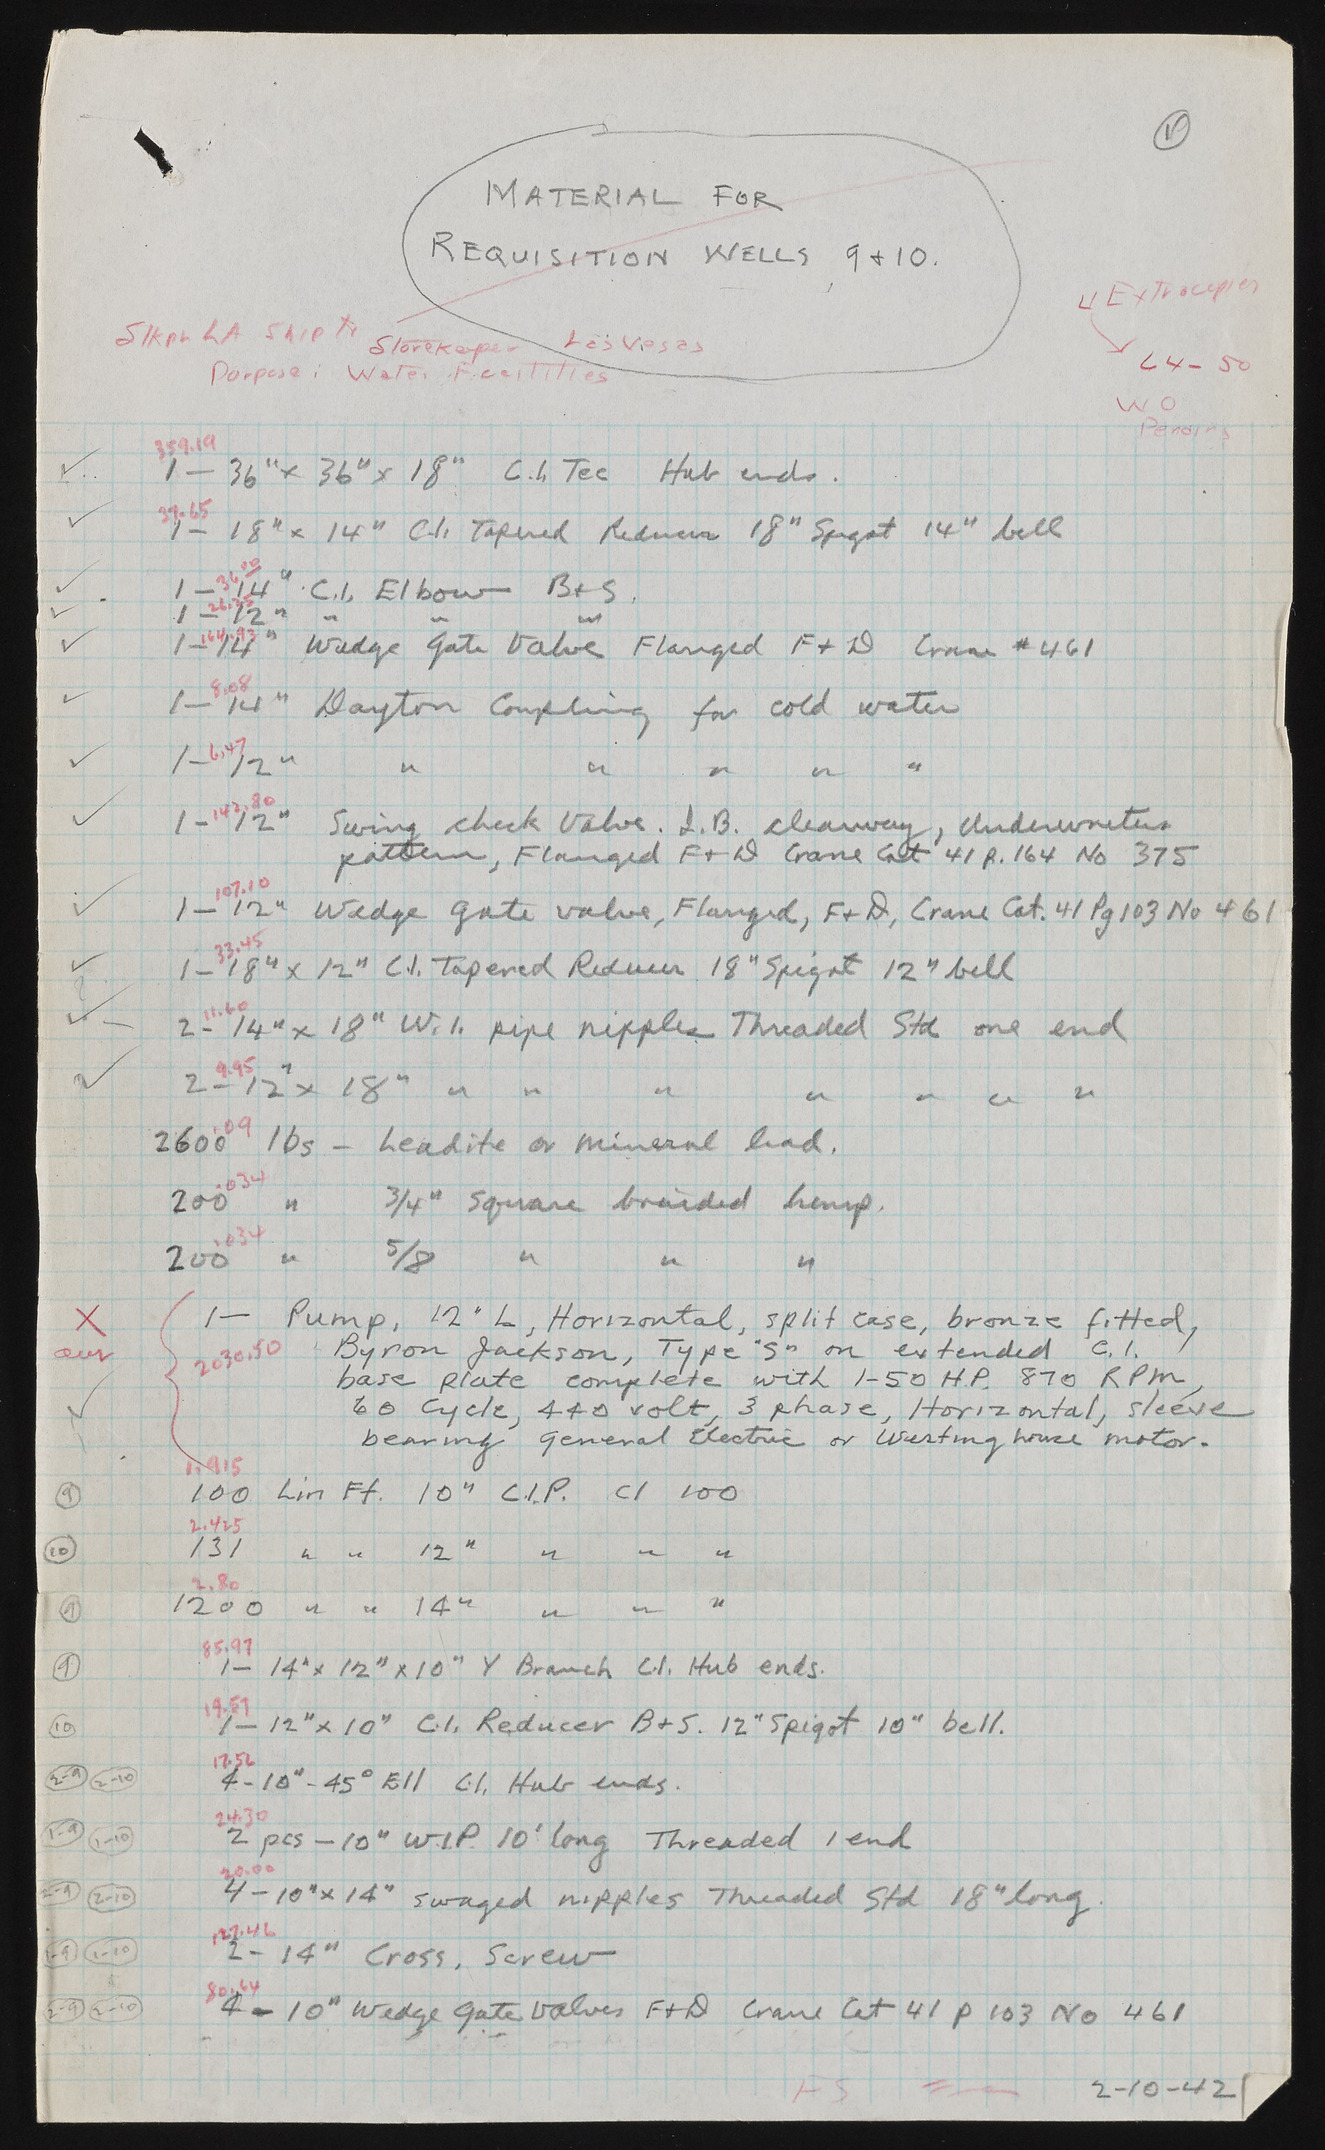 MATERIAL FOR
REQUISITION WELLS 9+10.
4 Extra copies
Stkpr LA Ship to Storekeeper Las Vegas
Purpose: Water Facilities
L4-50
WO
Pending
359.19
✓ 1- 36" x 36" x 18" C.I. Tee Hub ends.
39.65
✓ 1- 18" x 14" C.I. Tapered Reducer 18" Spigot 14" bell
36.00
✓ 1- 14" C.I. Elbow B+S.
26.25
✓ 1- 12" " " "
164.93
✓ 1- 14" Wedge Gate Valve Flanged F+D Crane #461
8.08
✓ 1- 14" Dayton Coupling for cold water
6.47
✓ 1- 12" " " " " "
142.80
✓ 1- 12" Swing check Valve. I.B. clearway, Underwriters
pattern, Flanged F+D Crane Cat 41 p. 164 No 375
107.10
✓ 1- 12" Wedge gate valve, Flanged, F+D, Crane Cat. 41 Pg 103 No 461
33.45
✓ 1- 18" x 12" C.I. Tapered Reducer 18" Spigot 12" bell
11.60
✓ 2- 14" x 18" W.I. pipe nipples Threaded Std one end
9.95
✓ 2- 12" x 18" " " " " " " "
.09
2600 lbs - Leadite or mineral lead.
.034
200 " 3/4" Square braided hemp.
.034
200 " 5/8 " " "
X 1- Pump, 12" L, Horizontal, split case, bronze fitted,
our 2030.50 Byron Jackson, Type "S" on extended C.I.
base plate complete with 1-50 H.P. 870 RPM,
✓ 60 Cycle, 440 volt, 3 phase, Horizontal, sleeve
bearing General Electric or Westinghouse motor.
1.915
9 100 Lin Ft. 10" C.I.P. Cl 100
2.425
10 131 " " 12" " " "
2.80
9 1200 " " 14" " " "
85.97
9 1- 14" x 12" x 10" Y Branch C.I. Hub ends.
19.57
10 1- 12" x 10" C.I. Reducer B+S. 12" Spigot 10" bell.
17.56
2-9 2-10 4- 10" - 45° Ell C.I. Hub ends.
24.30
1-9 1-10 2 pcs - 10" W.I.P. 10' long Threaded 1 end
20.00
2-9 2-10 4- 10" x 14" swaged nipples Threaded Std 18" long.
127.46
1-9 1-10 2- 14" Cross, Screw
80.64
2-9 2-10 4- 10" Wedge gate valves F+D Crane Cat 41 p 103 No 461
FS
2-10-42